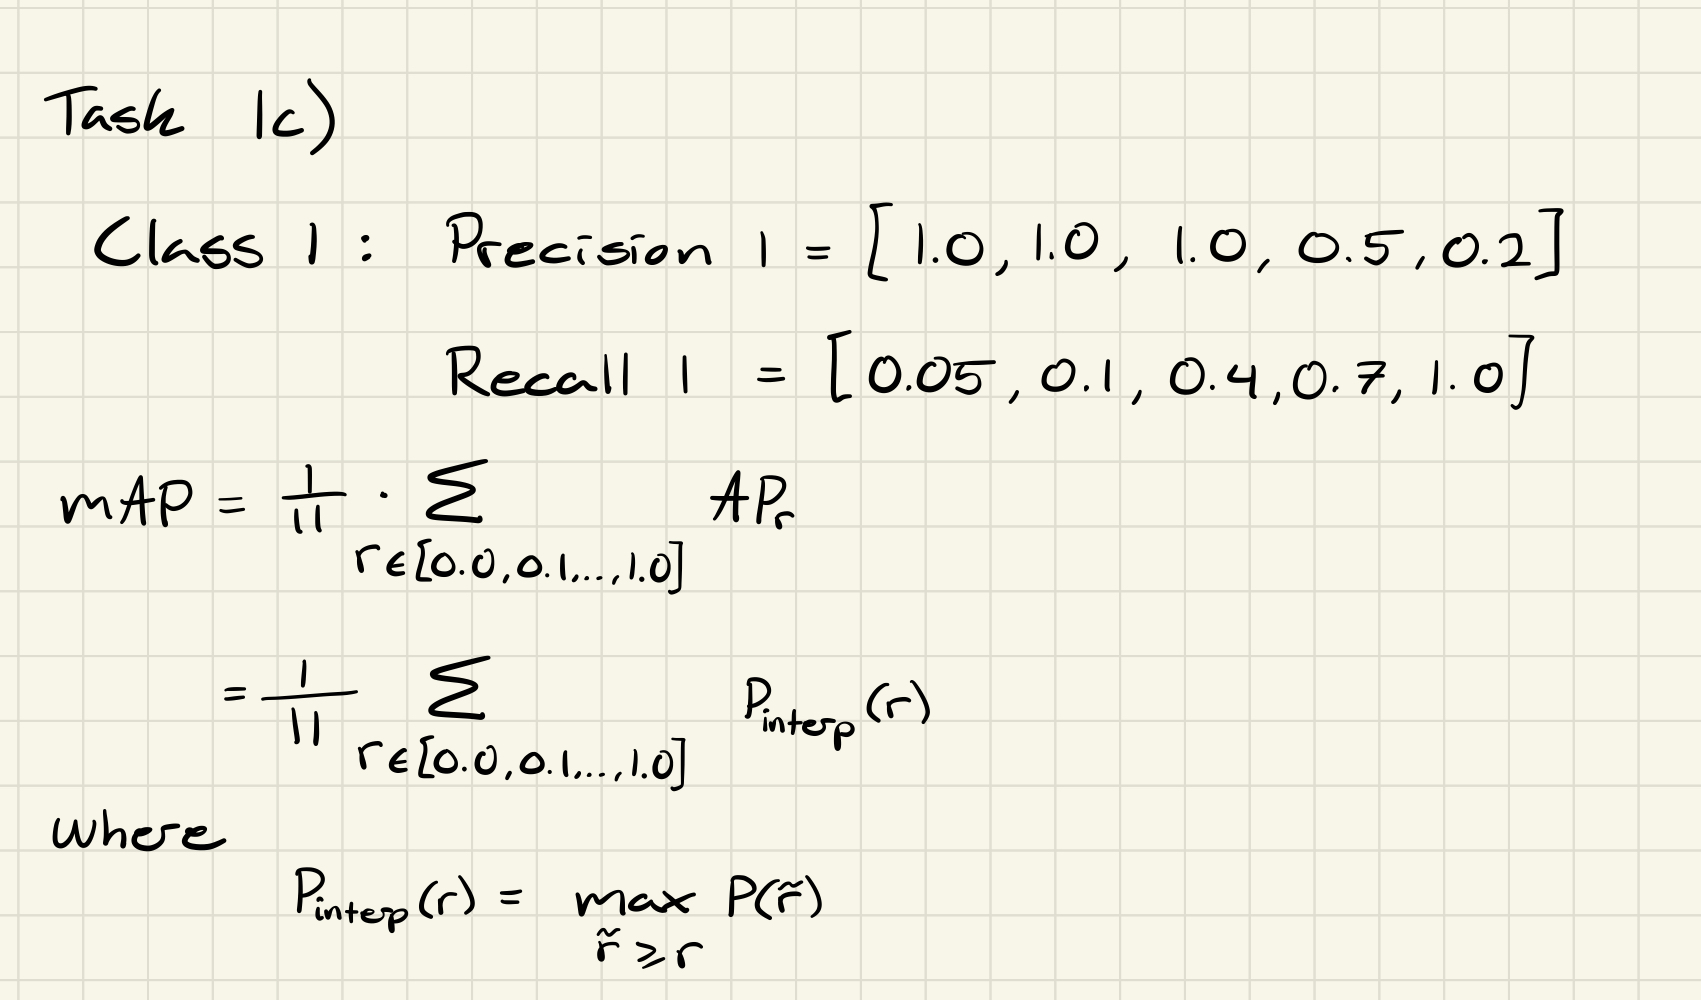 Task 1c)
Class 1 : Precision 1 = [1.0, 1.0, 1.0, 0.5, 0.2]
Recall 1 = [0.05, 0.1, 0.4, 0.7, 1.0]
mAP = 1/11 · Σ r∈[0.0,0.1,..,1.0] AP_r
= 1/11 Σ r∈[0.0,0.1,..,1.0] P_interp(r)
where
P_interp(r) = max r̃ ≥ r P(r̃)